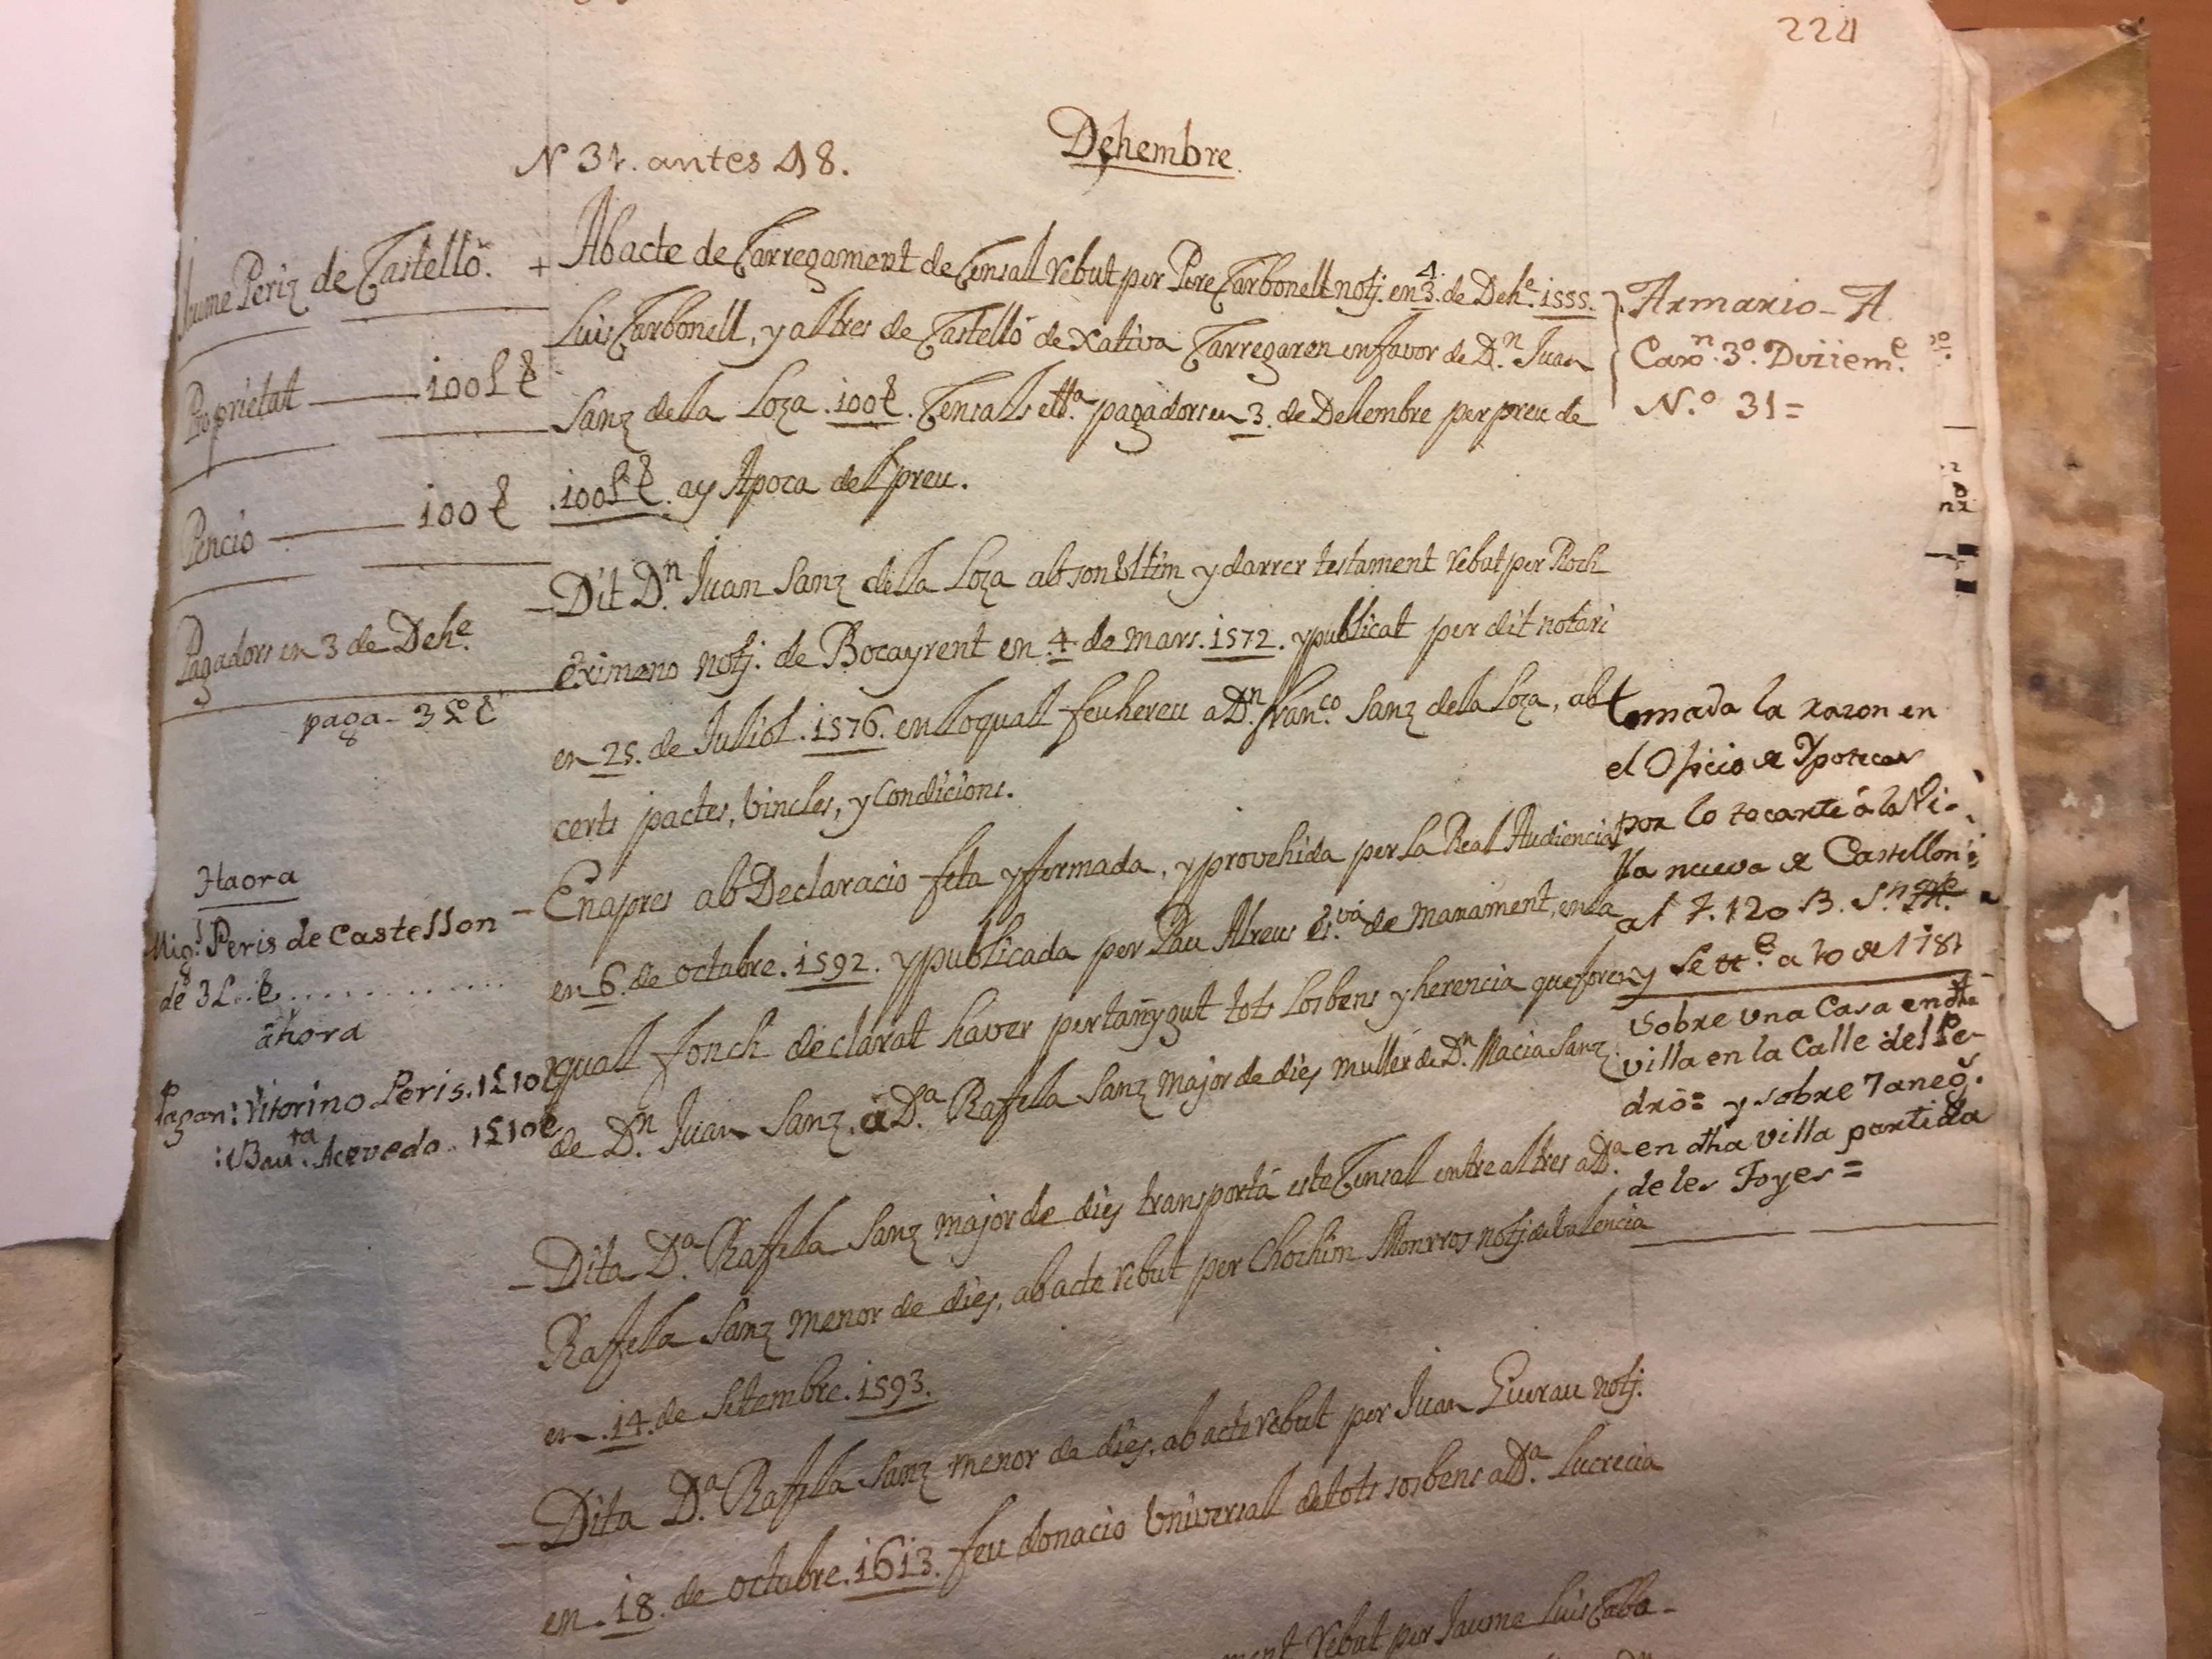 224
N 31. antes 48.
Dehembre.
Jaume Periz de Castelló.
Proprietat 100 S ₰
Pencio 100 ₰
Pagadors en 3 de Dehe.
paga - 3 £ ₰
Haora
Migl. Peris de Castellon
de 3 L.
ahora
Pagan: Vitorino Peris. 1£10
: Bauta. Acevedo.. 1£10
+ Ab acte de Carregament de Censall rebut per Pere Carbonell notj. en 4 3. de Dehe. 1555.
Luis Carbonell, y altres de Castelló de Xativa Carregaren en favor de Dn. Juan
Sanz de la Loza .100 ₰. Censals etta. pagadors en 3. de Dehembre per preu de
.100 S ₰. ay Apoca del preu.
- Dit Dn. Juan Sanz de la Loza ab son ultim y darrer testament rebut per Roch
eximeno notj. de Bocayrent en .4. de mars. 1572. y publicat per dit notari
en 25. de Juliol. 1576. en lo quall feu hereu a Dn. franco. Sanz de la Loza, ab
certs pactes, vincles, y Condicions.
- Enapres ab Declaracio feta y fermada, y provehida per la Real Audiencia
en 6. de octubre. 1592. y publicada per Pau Alreus de manament, en la
quall fonch declarat haver pertañygut tots los bens y herencia que foren
de Dn. Juan Sanz, á Da. Rafela Sanz major de dies muller de Dn. Macia Sanz.
- Dita Da. Rafela Sanz major de dies transportá este Censal entre altres a Da.
Rafela Sanz menor de dies, ab acte rebut per Chochim Monrros notj. de Valencia
en .14. de Setembre. 1593.
- Dita Da. Rafela Sanz menor de dies, ab acte rebut per Juan Guerau notj.
en .18. de octubre. 1613. feu donacio Universall de tots sos bens a Da. Lucrecia
ment rebut per Jaume Luis
Armario - A
Caxn. 3o. Dviieme.
N.o 31=
tomada la razon en
el Oficio de Ypotecas
por lo tocante á la Vi-
lla nueva de Castellon
al F. 120 B.
y Sette. a 10 de 1781
Sobre una Casa en dha
villa en la Calle del Pe-
dró= y sobre 7 aneg.s
en dha villa partida
de les Foyes=